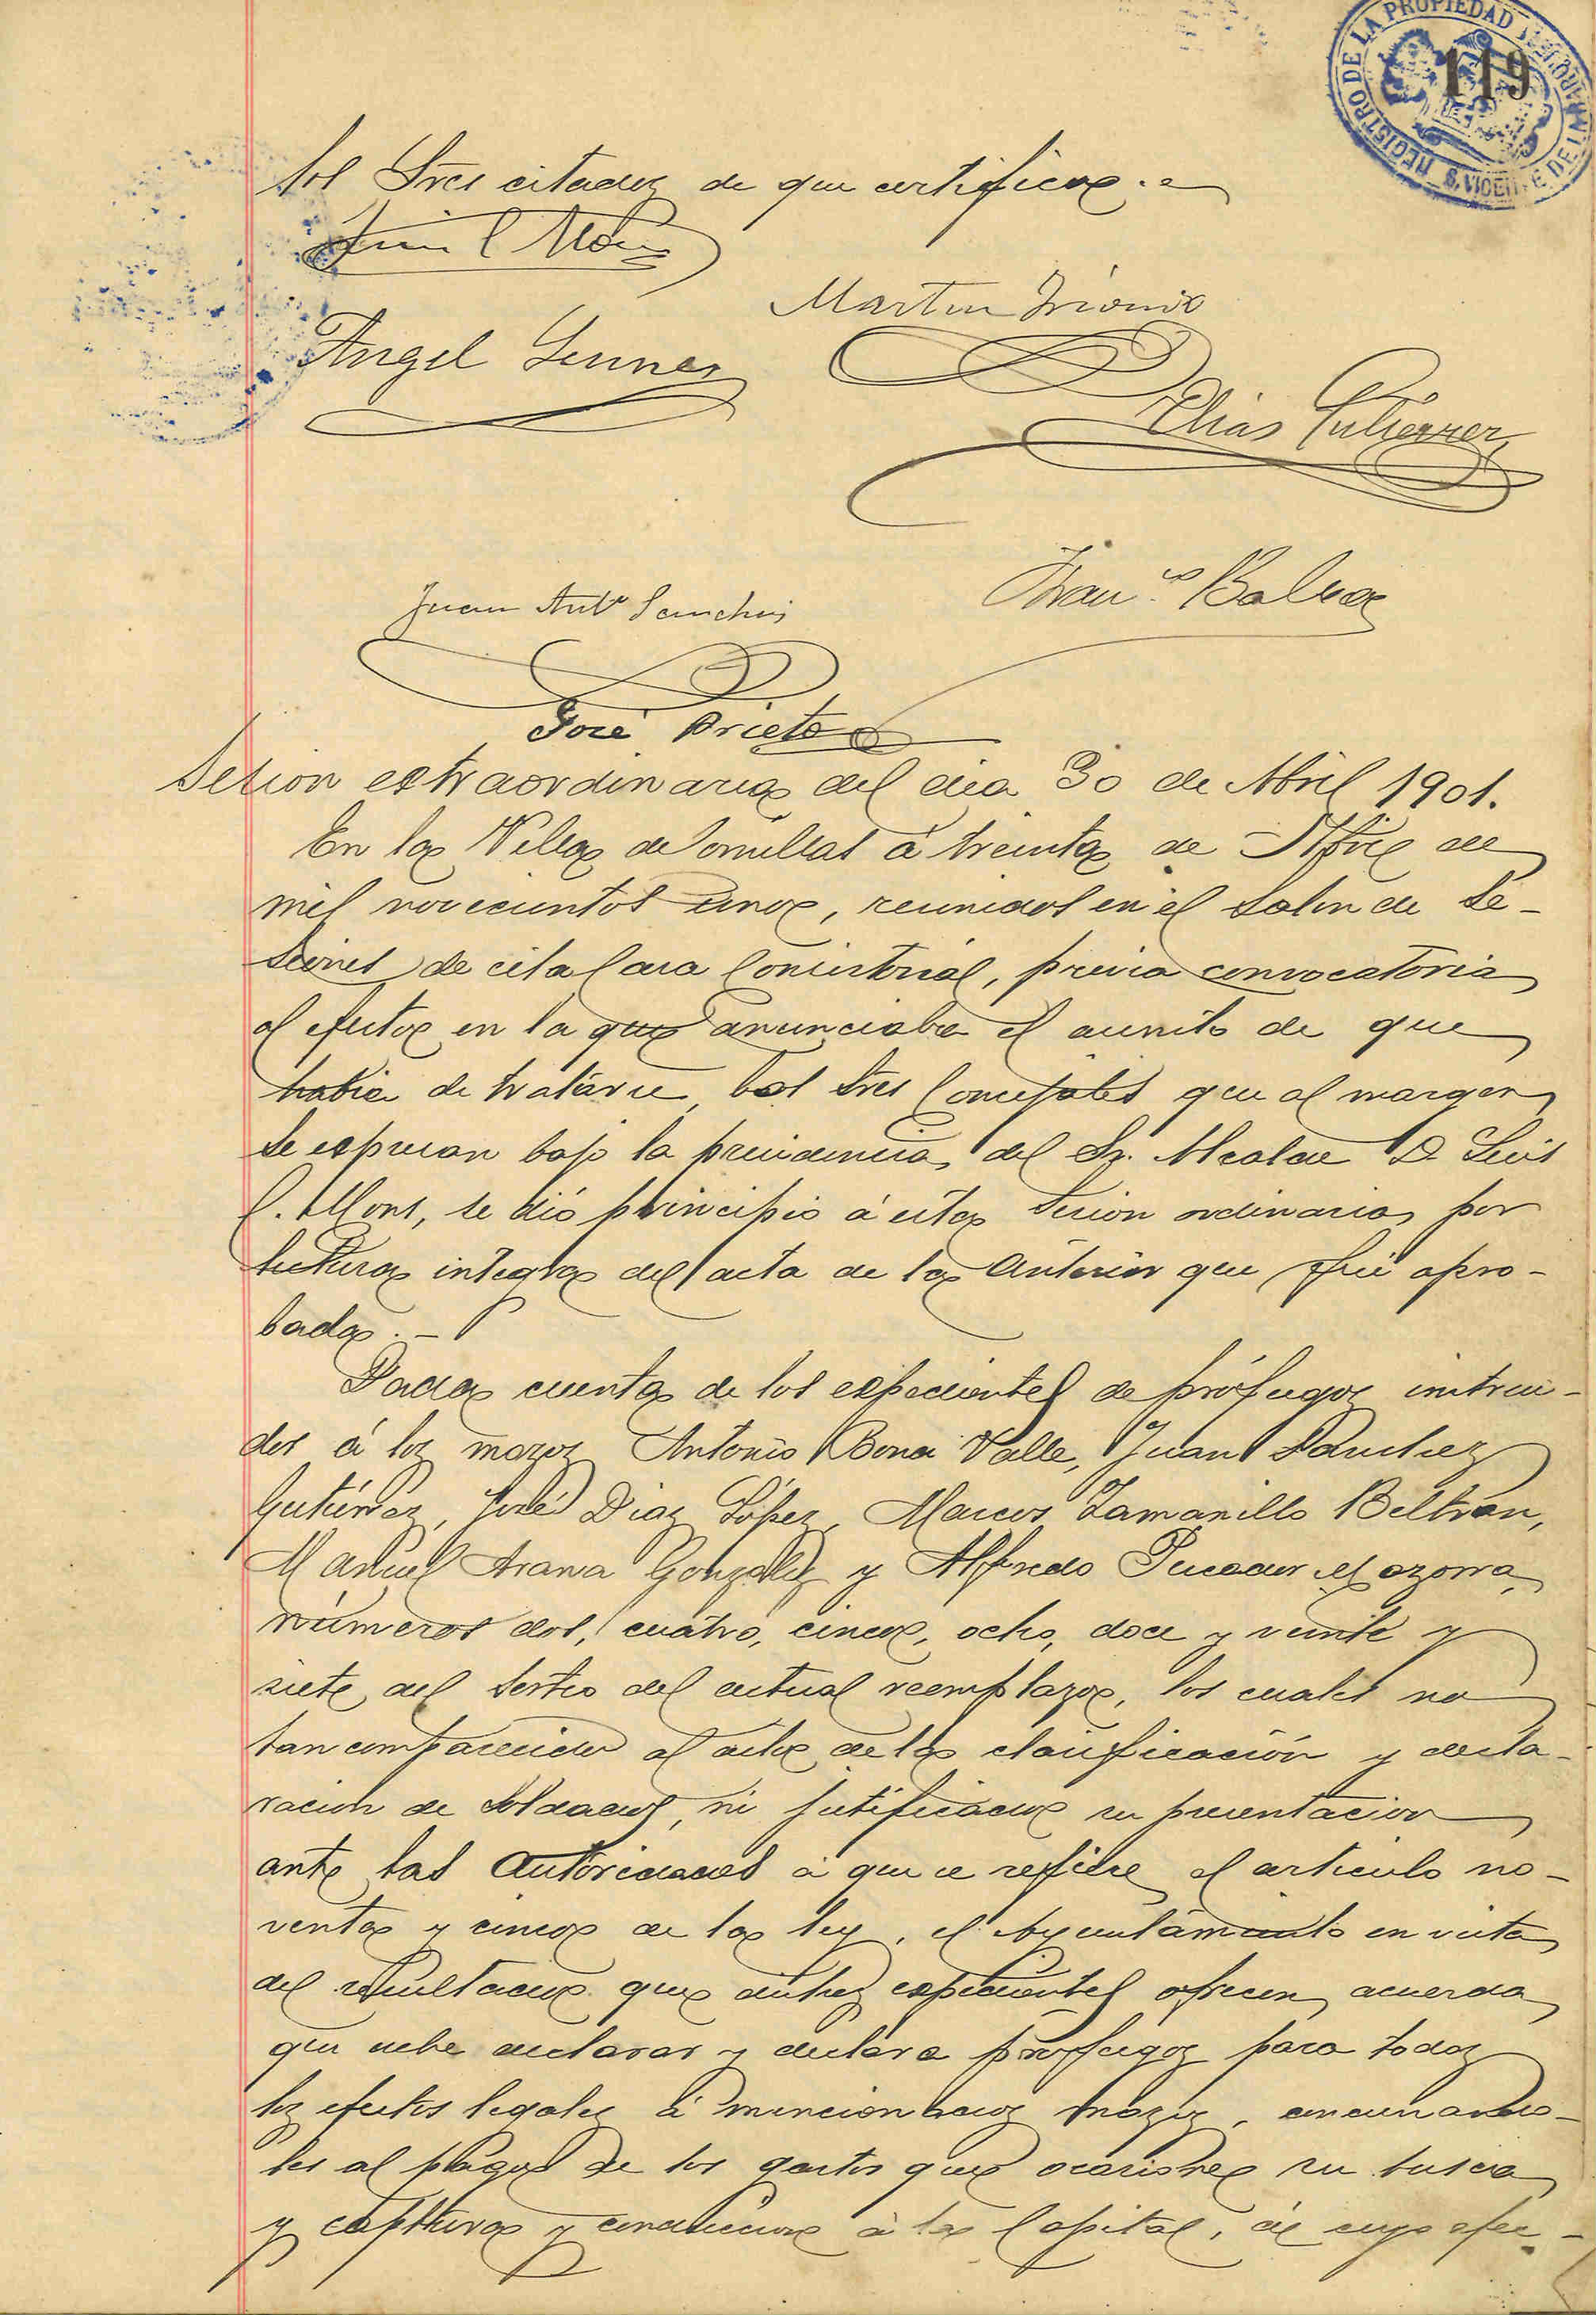 REGISTRO DE LA PROPIEDAD
S. VICENTE DE LA BARQUERA
119
los Sres citados de que certifico.
Luis C Mons
Martin
Angel
Elias Gutierrez
Franco Balbas
Juan Anto Sanchez
José Prieto
Sesion extraordinaria del dia 30 de Abril 1901.
En la Villa de Comillas á treinta de Abril de
mil novecientos uno, reunidos en el Salon de Se-
siones de esta Casa Consistorial, previa convocatoria
al efecto en la que anunciaba el asunto de que
habia de tratarse, los Sres Concejales que al margen
se espresan bajo la presidencia del Sr. Alcalde D. Luis
C. Mons, se dió principio á esta sesion ordinaria por
lectura integra del acta de la anterior que fué apro-
bada.-
Dada cuenta de los espedientes de prófugos instrui-
dos á los mozos Antonio Bona Valle, Juan Sanchez
Gutiérrez, José Diaz López, Marcos Zamanillo Beltrán,
Manuel Arana González y Alfredo Mazorra,
números dos, cuatro, cinco, ocho, doce y veinte y
siete del sorteo del actual reemplazo, los cuales no
han comparecido al acto de la clasificación y decla-
racion de Soldados, ni justificado su presentacion
ante las Autoridades á que se refiere el articulo no-
venta y cinco de la ley, el Ayuntamiento en vista
del resultado que dichos espedientes ofrecen, acuerda
que debe declarar y declara prófugos para todos
los efectos legales á mencionados mozos, condenando-
les al pago de los gastos que ocasione su busca
y captura y conduccion á la Capital, á cuyo efec-